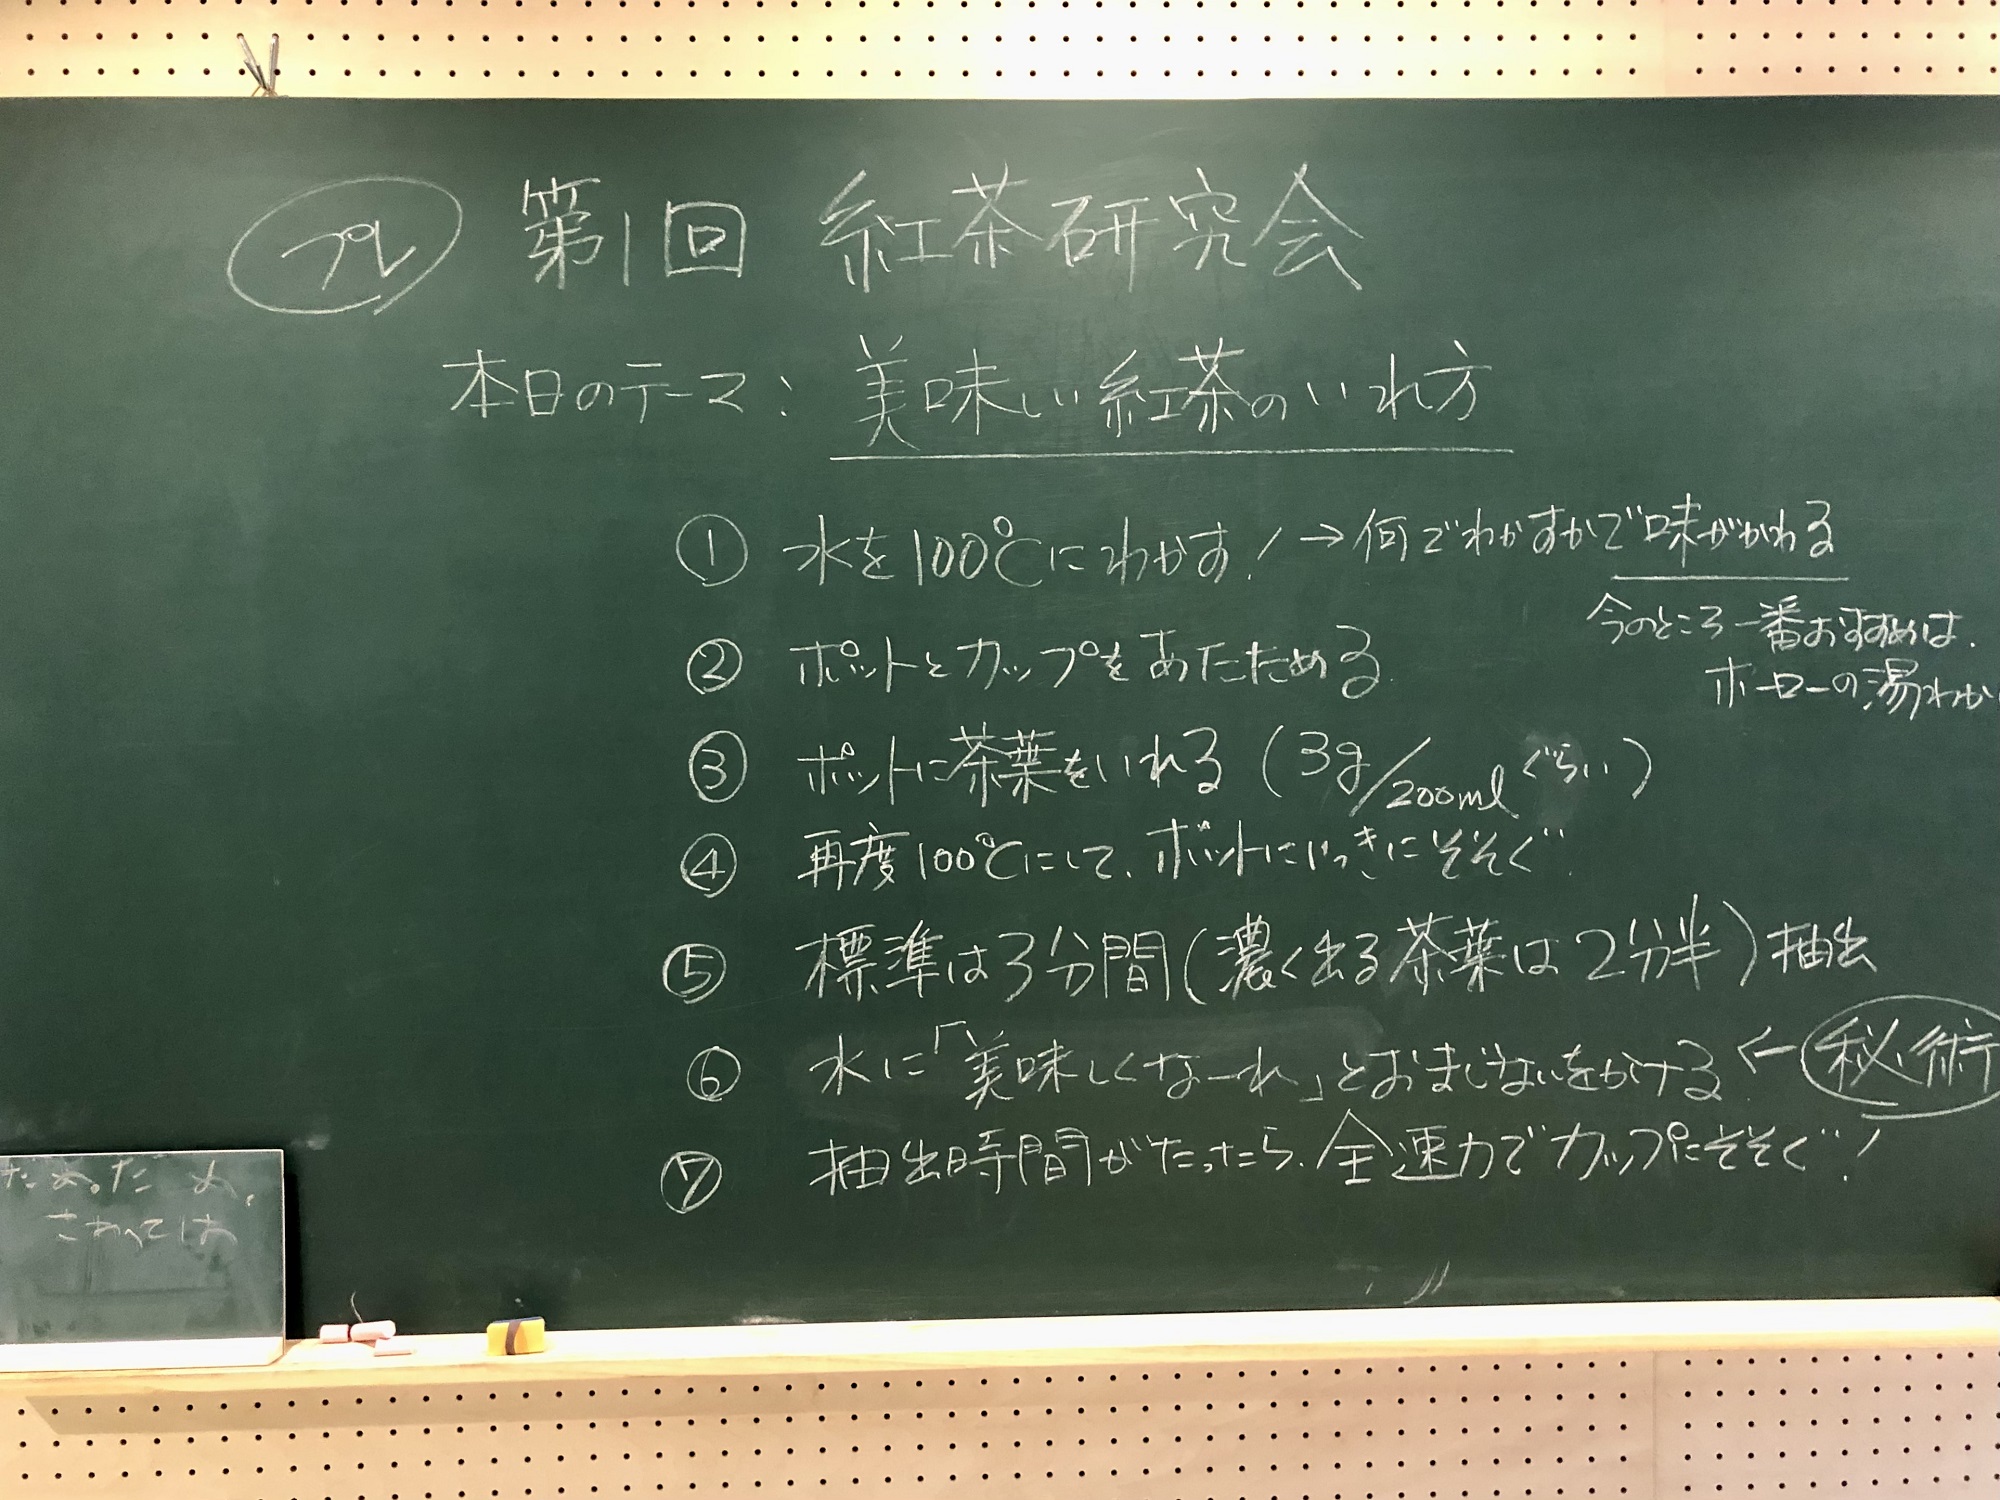 プレ 第1回 紅茶研究会
本日のテーマ: 美味しい紅茶のいれ方
① 水を100℃にわかす! →何でわかすかで味がかわる
今のところ一番おすすめは、
ホーローの湯わか
② ポットとカップをあたためる
③ ポットに茶葉をいれる (3g/200mlぐらい)
④ 再度100℃にして、ポットにいっきにそそぐ
⑤ 標準は3分間(濃く出る茶葉は2分半)抽出
⑥ 水に「美味しくなーれ」とおまじないをかける ←秘術
⑦ 抽出時間がたったら、全速力でカップにそそぐ!